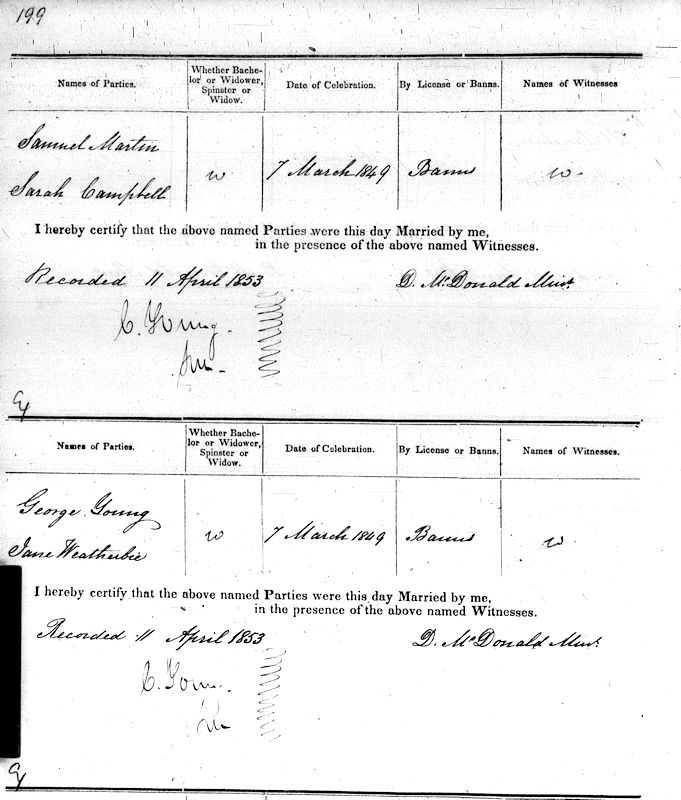 199
Names of Parties. Whether Bache- Date of Celebration. By License or Banns. Names of Witnesses
lor or Widower,
Spinster or
Widow.
Samuel Martin
w 7 March 1849 Banns w
Sarah Campbell
I hereby certify that the above named Parties were this day Married by me,
in the presence of the above named Witnesses.
Recorded 11 April 1853 D. McDonald Minr.
C. Young
Names of Parties. Whether Bache- Date of Celebration. By License or Banns. Names of Witnesses.
lor or Widower,
Spinster or
Widow.
George Young
w 7 March 1849 Banns w
Jane Weatherbie
I hereby certify that the above named Parties were this day Married by me,
in the presence of the above named Witnesses.
Recorded 11 April 1853 D. McDonald Minr.
C. Young